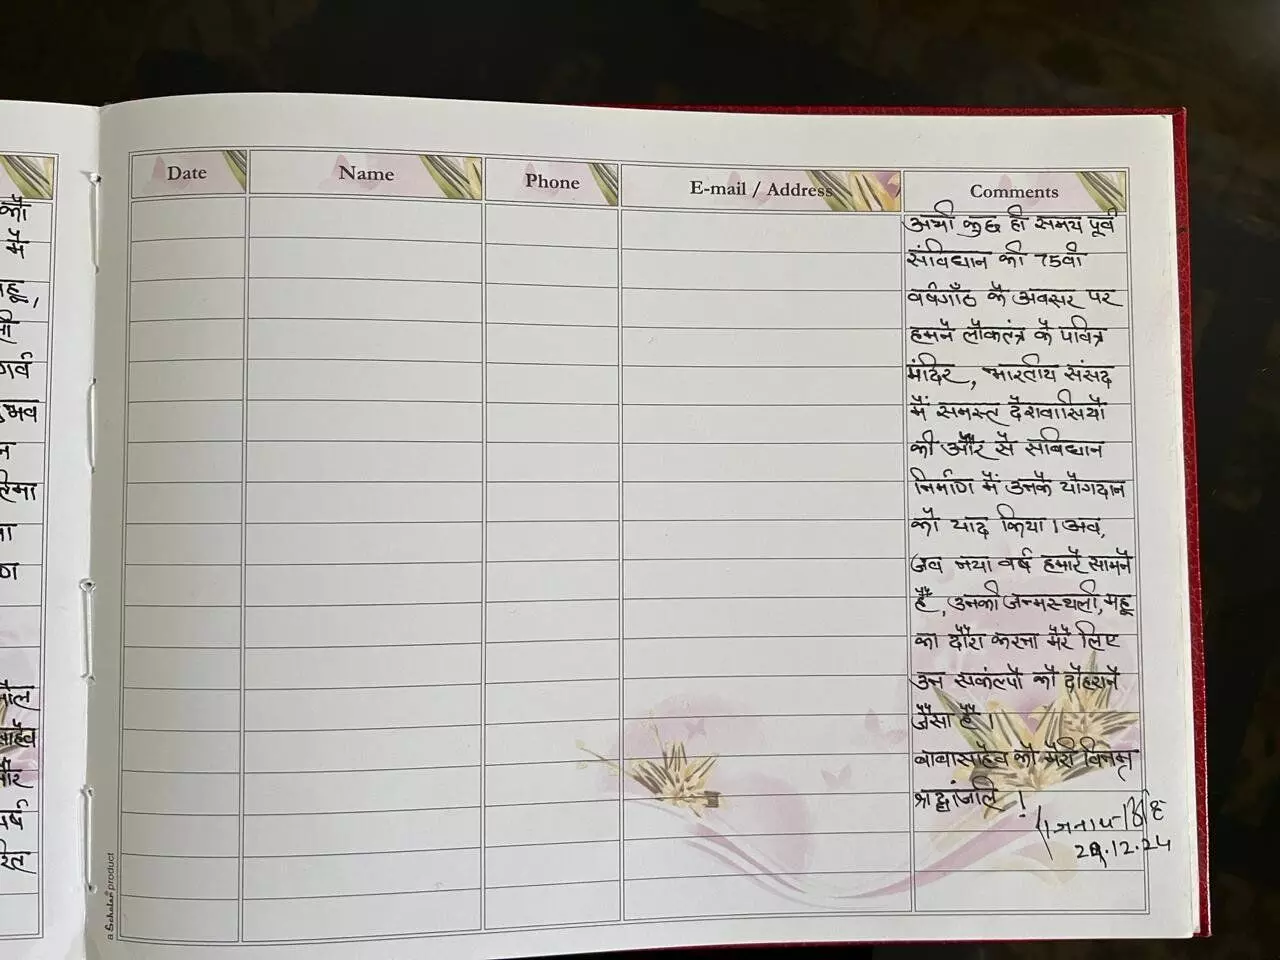 को
में
महू,
गर्व
Date Name Phone E-mail / Address Comments
अभी कुछ ही समय पूर्व
संविधान की 75वी
वर्षगाँठ के अवसर पर
हमने लोकतंत्र के पवित्र
मंदिर, भारतीय संसद
में समस्त देशवासियों
की ओर से संविधान
निर्माण में उनके योगदान
को याद किया। अब,
जब नया वर्ष हमारे सामने
है, उनकी जन्मस्थली, महू
का दौरा करना मेरे लिए
उन संकल्पों को दोहराने
जैसा है।
बाबासाहेब को मेरी विनम्र
श्रद्धांजलि !
राजनाथ सिंह
29.12.24
a Scholar product